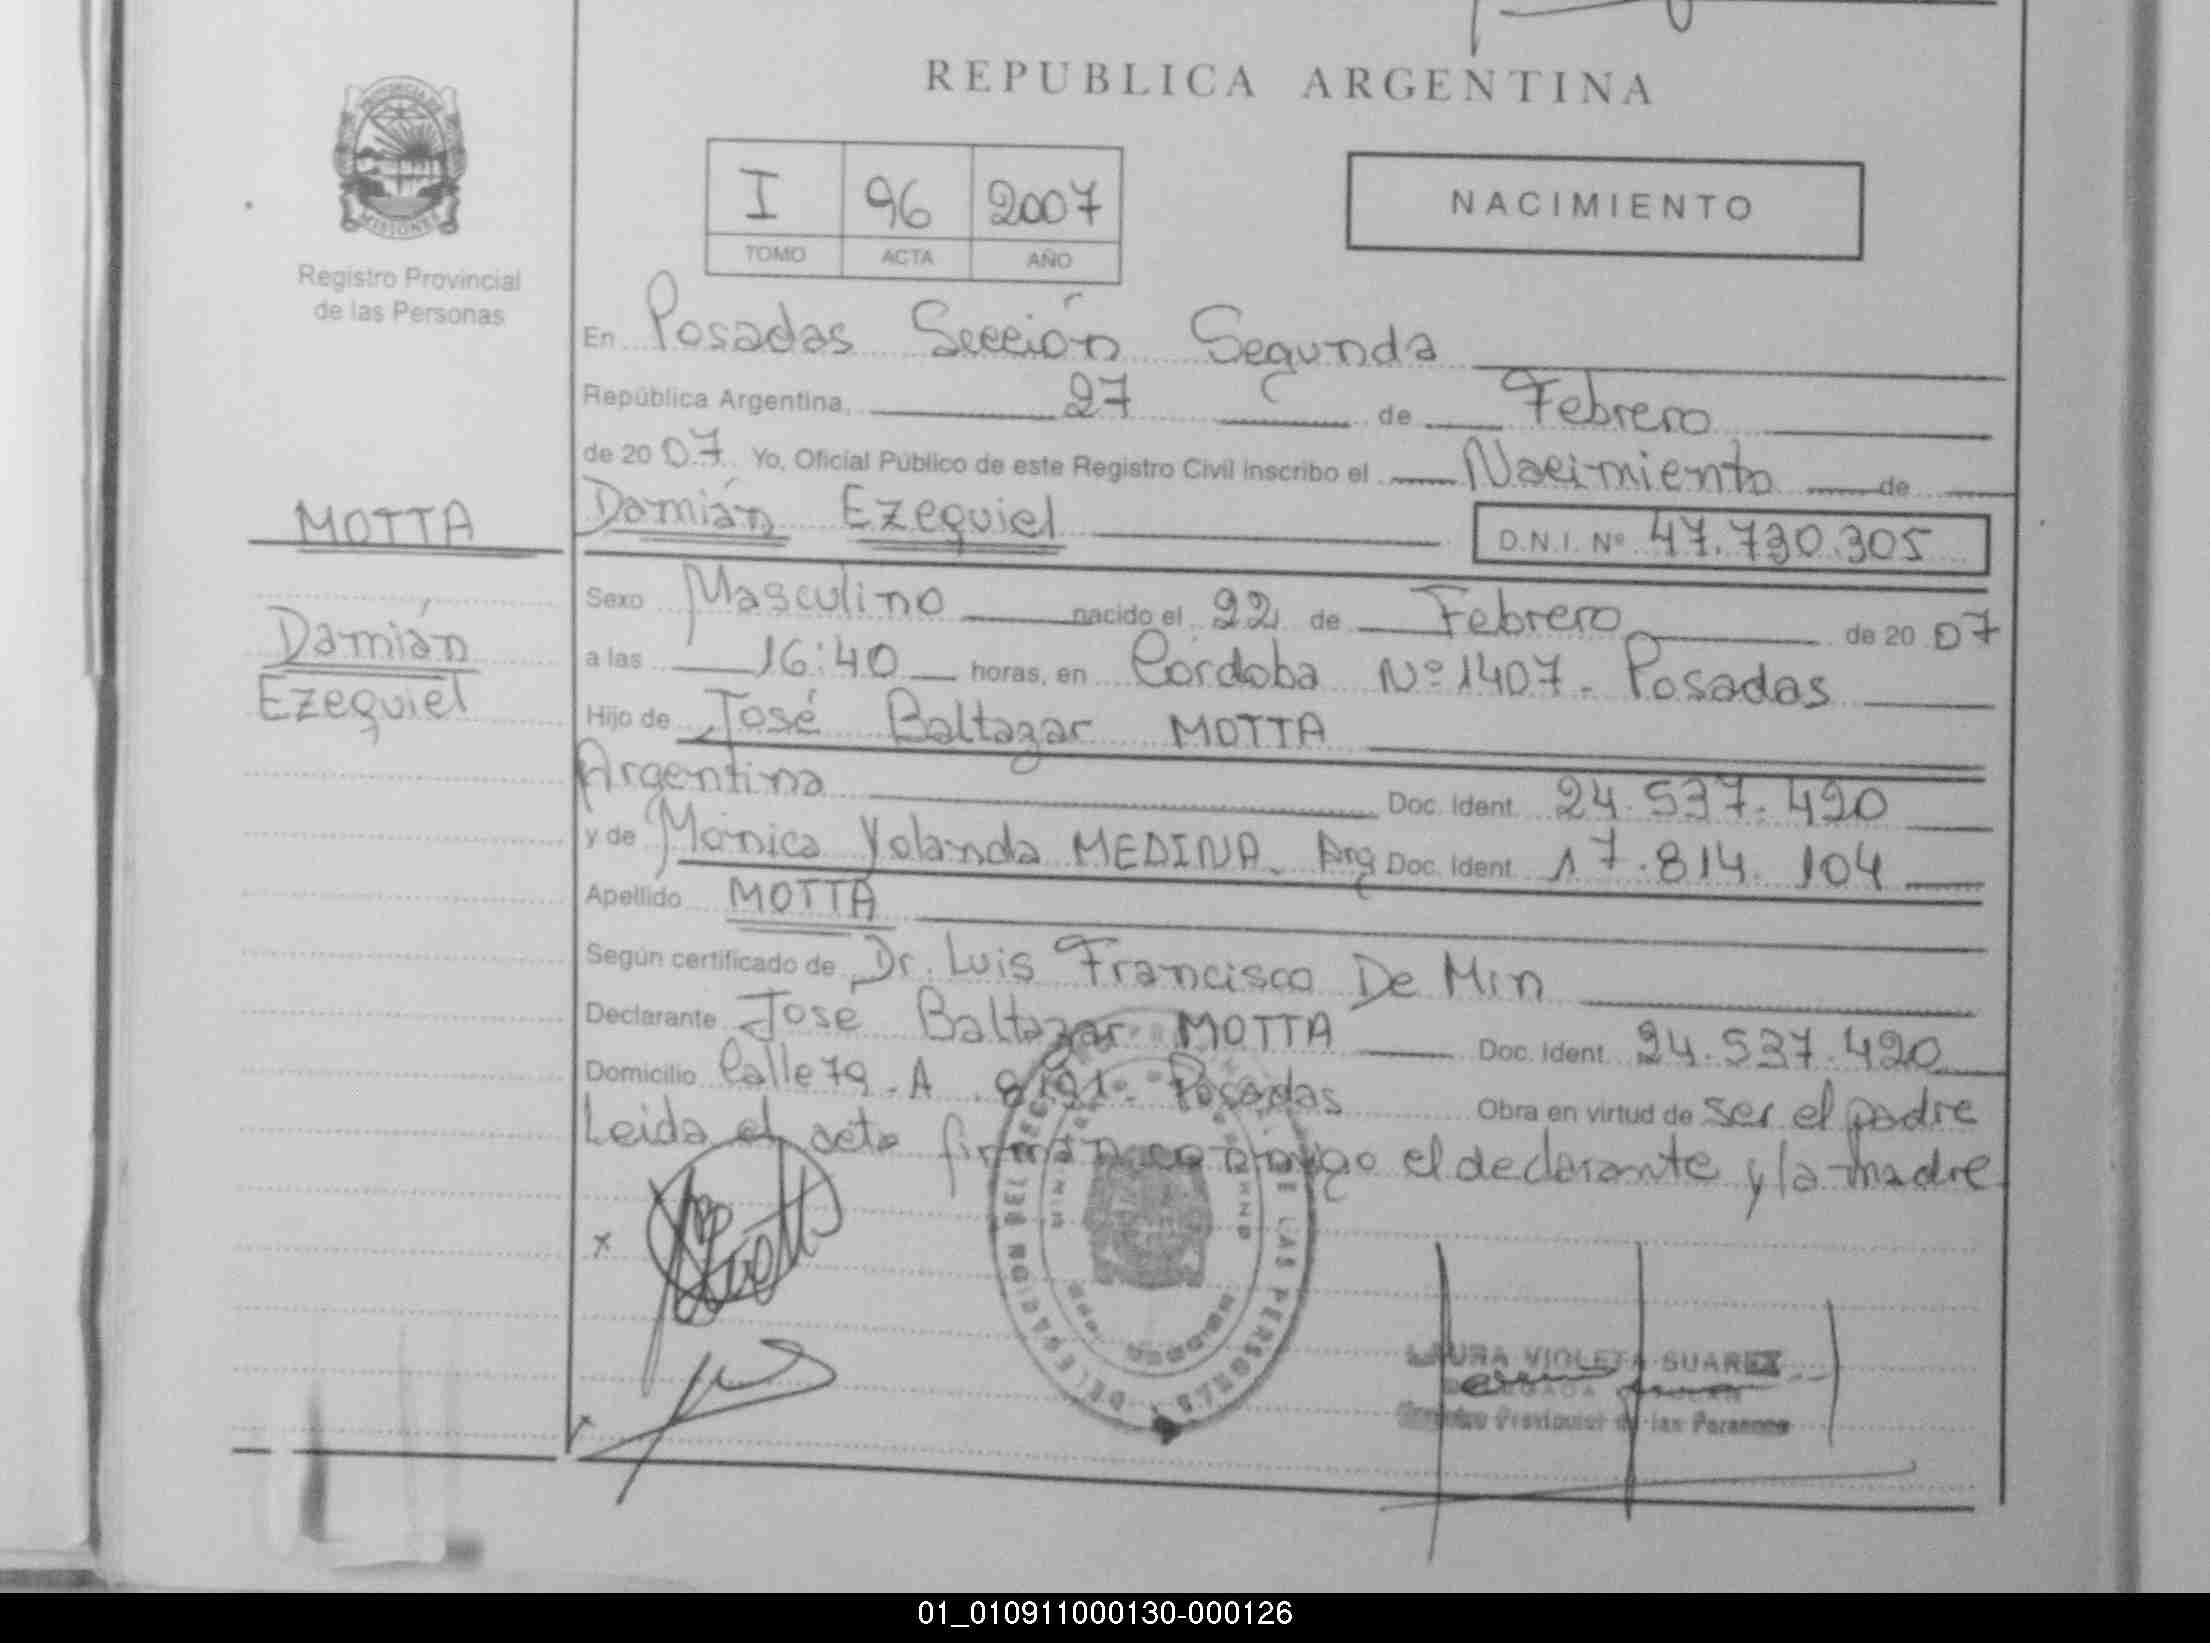 REPUBLICA ARGENTINA
PROVINCIA DE
MISIONES
Registro Provincial
de las Personas
I 96 2007
TOMO ACTA AÑO
NACIMIENTO
En Posadas Sección Segunda
República Argentina, 27 de Febrero
de 2007 Yo, Oficial Público de este Registro Civil inscribo el Nacimiento de
MOTTA
Damián Ezequiel D.N.I. Nº 47.730.305
Damián
Ezequiel
Sexo Masculino nacido el 22 de Febrero de 2007
a las 16:40 horas, en Córdoba Nº 1407. Posadas
Hijo de José Baltazar MOTTA
Argentina Doc. Ident. 24.537.420
y de Mónica Yolanda MEDINA. Arg Doc. Ident. 17.814.104
Apellido MOTTA
Según certificado de Dr. Luis Francisco De Min
Declarante José Baltazar MOTTA Doc. Ident. 24.537.420
Domicilio Calle 79. A 8191. Posadas Obra en virtud de ser el padre
Leida el acta firman conmigo el declarante y la madre
x
DELEGACION DEL REG. DE LAS PERSONAS
LAURA VIOLETA SUAREZ
DELEGADA
Registro Provincial de las Personas
01_010911000130-000126